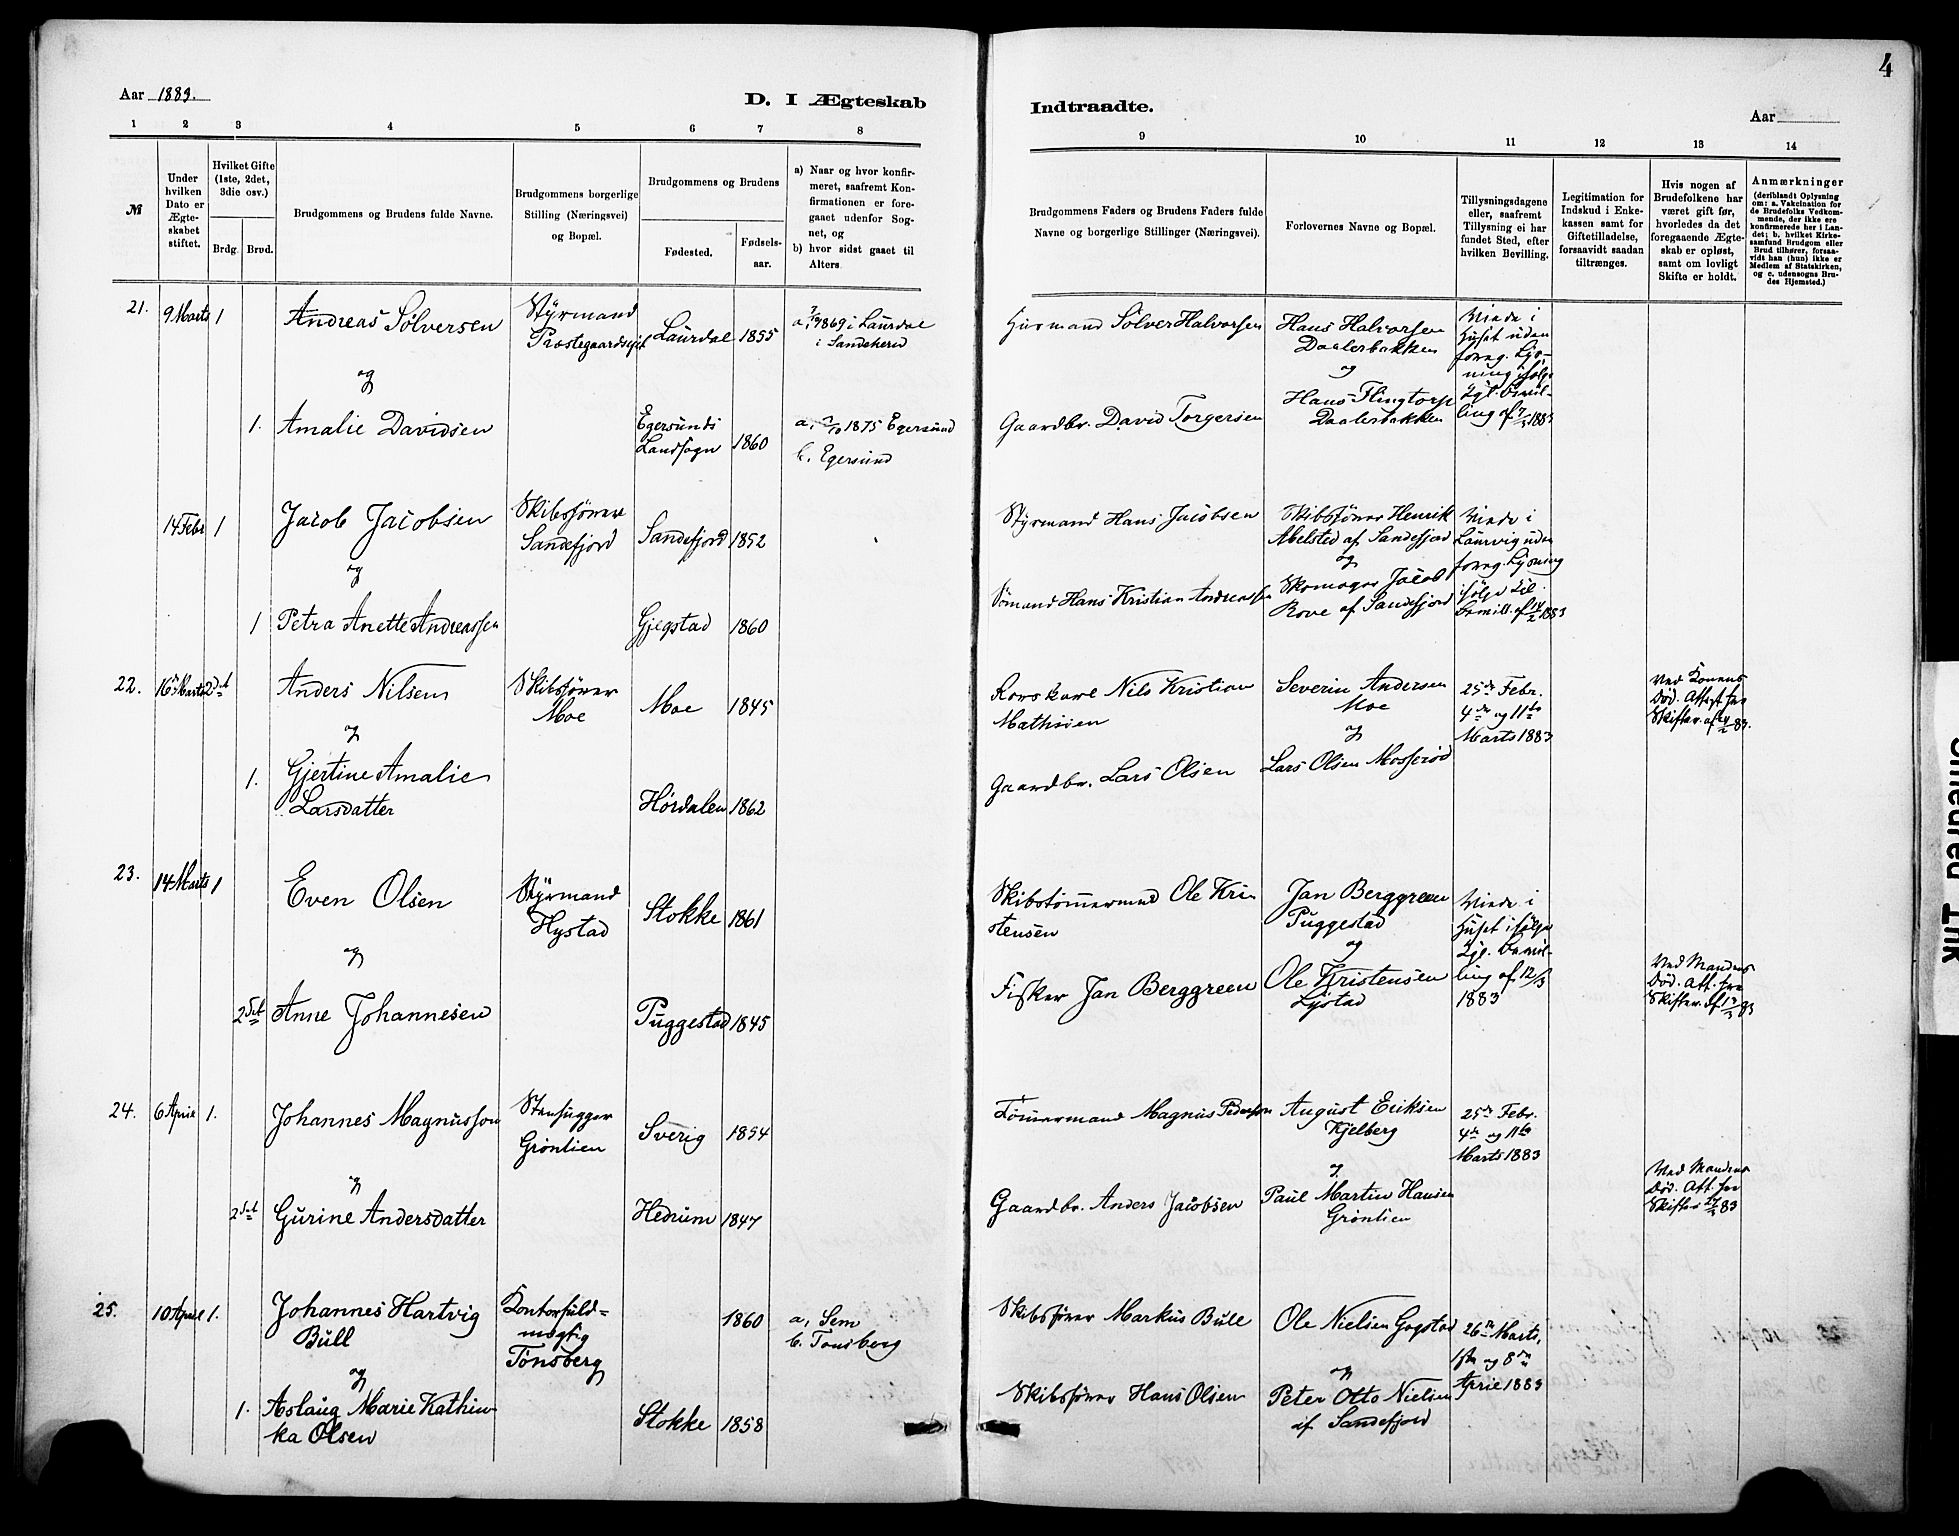 4
Aar 1883.
D. I Ægteskab
Indtraadte.
Aar
1 2 3 4 5 6 7 8
9 10 11 12 13 14
№
Under
hvilken
Dato er
Ægte-
skabet
stiftet.
Hvilket Gifte
(1ste, 2det,
3die osv.)
Brdg.
Brud.
Brudgommens og Brudens fulde Navne.
Brudgommens borgerlige
Stilling (Næringsvei)
og Bopæl.
Brudgommens og Brudens
Fødested.
Fødsels-
aar.
a) Naar og hvor konfir-
meret, saafremt Kon-
firmationen er fore-
gaaet udenfor Sog-
net, og
b) hvor sidst gaaet til
Alters.
Brudgommens Faders og Brudens Faders fulde
Navne og borgerlige Stillinger (Næringsvei).
Forlovernes Navne og Bopæl.
Tillysningsdagene
eller, saafremt
Tillysning ei har
fundet Sted, efter
hvilken Bevilling.
Legitimation for
Indskud i Enke-
kassen samt for
Giftetilladelse,
forsaavidt saadan
tiltrænges.
Hvis nogen af
Brudefolkene har
været gift før,
hvorledes da det
foregaaende Ægte-
skab er opløst,
samt om lovligt
Skifte er holdt.
Anmærkninger
(deriblandt Oplysning
om: a. Vakcination for
de Brudefolks Vedkom-
mende, der ikke ere
konfirmerede her i Lan-
det; b. hvilket Kirke-
samfund Brudgom eller
Brud tilhører, forsaa-
vidt han (hun) ikke er
Medlem af Statskirken,
og c. udensogns Bru-
des Hjemsted.)
21. 9 Marts 1
Andreas Sølversen
Styrmand
Laurdal 1855
i Laurdal
i Sandeherred
Sølver Halvorsen
Hans Halvorsen
Daalerbakken
og
Hans Flingtorp
Daalerbakken
Viede i
Huset uden
foreg. Lys-
ning ifølge
Kgl. Bevil-
ling af 7/3 1883
og
1. Amalie Davidsen
Egersunds
Landsogn 1860
1875 Egersund
b. Egersund
Gaardbr. David Torgersen
14 Febr 1
Jacob Jacobsen
Skibsfører
Sandefjord
Sandefjord 1852
Styrmand Hans Jacobsen
Skibsfører Henrik
Abelsted af Sandefjord
og
Skomager Jacob
Rove af Sandefjord
Viede i
Laurvig uden
foreg. Lysning
ifølge Kgl.
Bevill. af 14/2 1883
og
1 Petra Anette Andreassen
Gjegstad 1860
Sømand Hans Kristian Andreassen
22. 16 Marts 2det
Anders Nilsen
Skibsfører
Moe
Moe 1845
Nils Kristian
Mathisen
Severin Andersen
Moe
og
Lars Olsen Mosserød
25de Febr.
4de og 11te
Marts 1883
Ved Konens
Død. Attest fra
Skifter. af 24/2 83.
og
1. Gjertine Amalie
Larsdatter
Hørdalen 1862
Gaardbr. Lars Olsen
23. 14 Marts 1
Even Olsen
Styrmand
Hystad
Stokke 1861
Skibstømmermand Ole Kri
stensen
Jan Berggreen
Puggestad
og
Ole Kristensen
Viede i
Huset ifølge
Kgl. Bevil-
ling af 12/3
1883
og
2det Anne Johannesen
Puggestad 1845
Fisker Jan Berggreen
Ved Mandens
Død. Att. fra
Skifter. af
24. 6 April 1.
Johannes Magnusson
Stenhugger
Grønlien
Sverig 1854
Tømmermand Magnus Pederson
August Eriksen
Kjelberg
og
Paul Martin Hansen
Grønlien
25de Febr.
4de og 11te
Marts 1883
og
2det Gurine Andersdatter
Hedrum 1847
Gaardbr. Anders Jacobsen
Ved Mandens
Død. Att. fra
25. 10 April 1.
Johannes Hartvig
Bull
Kontorfuld-
mægtig
Tønsberg
1860
a, Sem
b. Tønsberg
Skibsfører Markus Bull
Ole Nielsen Gogstad
og
Peter Otto Nielsen
af Sandefjord
26de Marts,
1ste og 8de
April 1883
og
1. Aslaug Marie Kathin-
ka Olsen
Stokke 1858
Skibsfører Hans Olsen
Smeared Ink